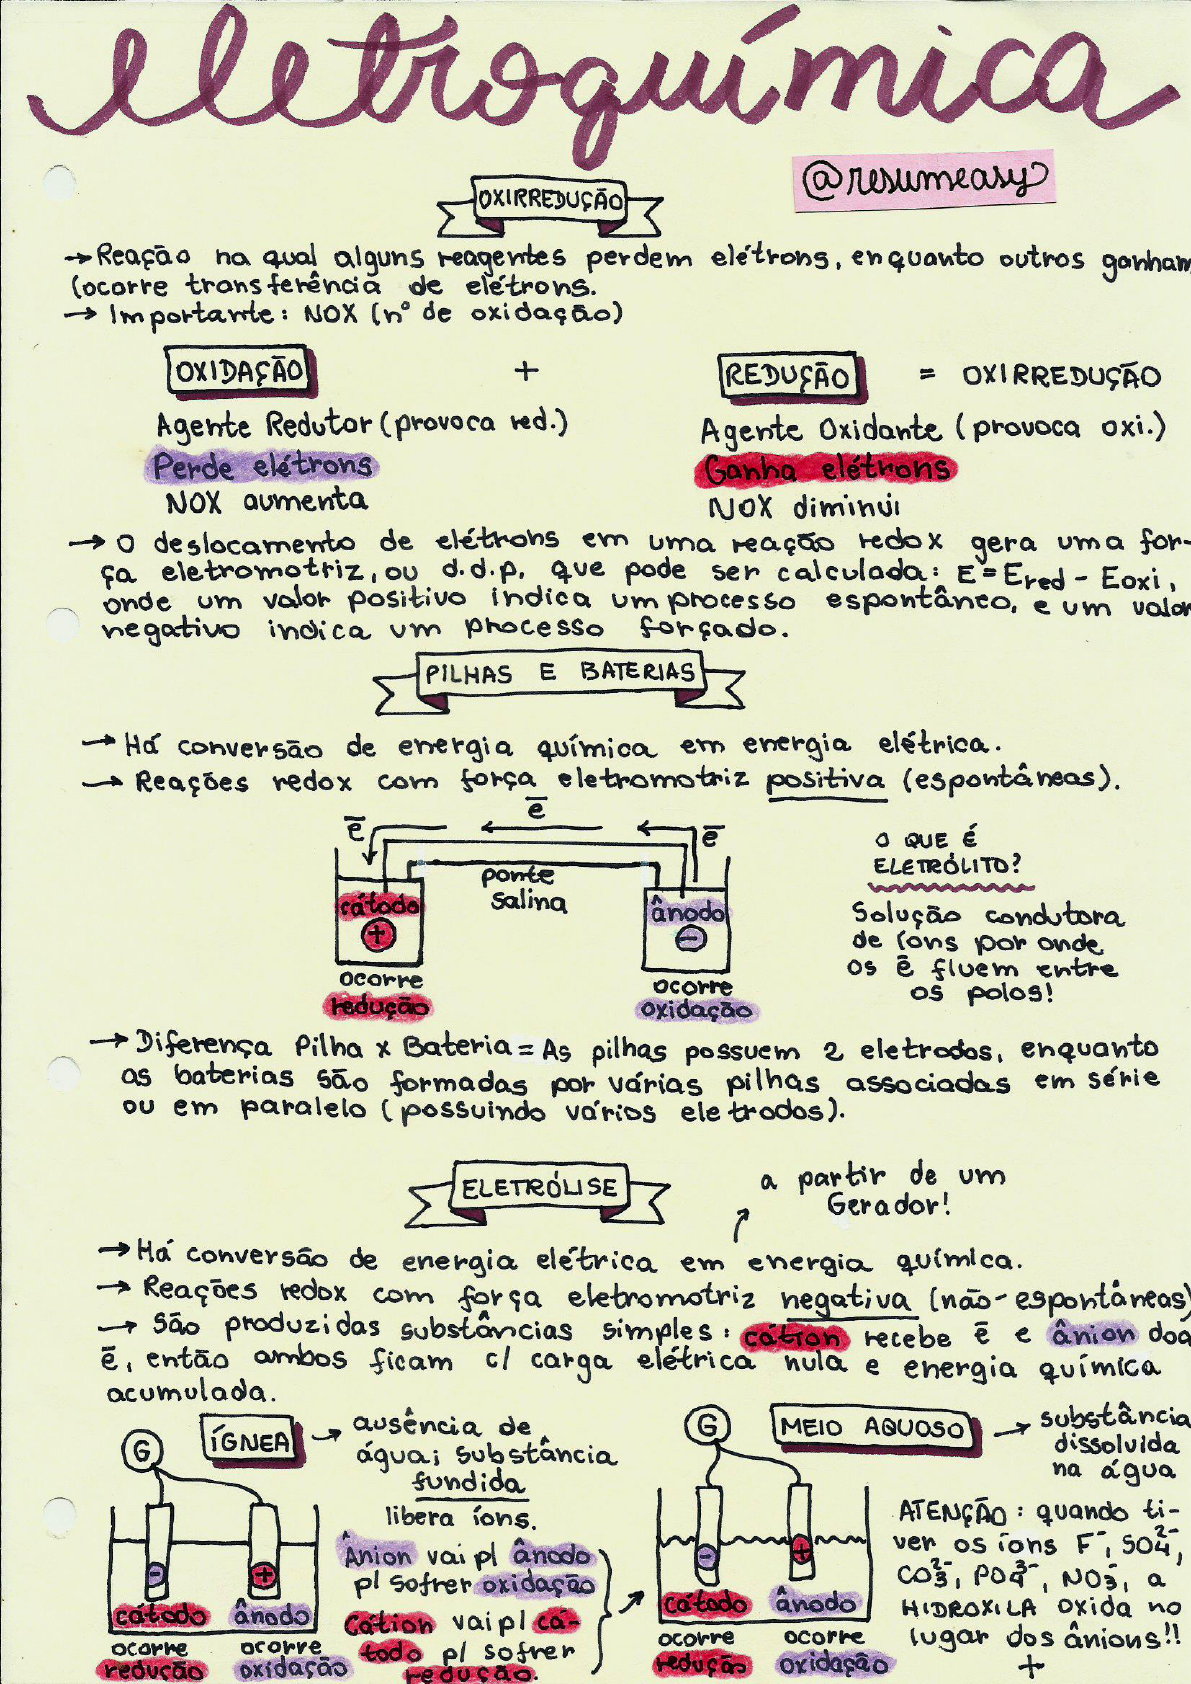 eletroquímica
@resumeasy
OXIRREDUÇÃO
→ Reação na qual alguns reagentes perdem elétrons, enquanto outros ganham
(ocorre transferência de elétrons.
→ Importante: NOX (nº de oxidação)
OXIDAÇÃO + REDUÇÃO = OXIRREDUÇÃO
Agente Redutor (provoca red.) Agente Oxidante (provoca oxi.)
Perde elétrons Ganha elétrons
NOX aumenta NOX diminui
→ O deslocamento de elétrons em uma reação redox gera uma for-
ça eletromotriz, ou d.d.p, que pode ser calculada: E = Ered - Eoxi,
onde um valor positivo indica um processo espontâneo, e um valor
negativo indica um processo forçado.
PILHAS E BATERIAS
→ Há conversão de energia química em energia elétrica.
→ Reações redox com força eletromotriz positiva (espontâneas).
e̅ e̅ e̅
ponte
salina
cátodo
+
ocorre
redução
ânodo
-
ocorre
oxidação
O QUE É
ELETRÓLITO?
Solução condutora
de íons por onde
os e̅ fluem entre
os polos!
→ Diferença Pilha x Bateria = As pilhas possuem 2 eletrodos, enquanto
as baterias são formadas por várias pilhas associadas em série
ou em paralelo (possuindo vários eletrodos).
ELETRÓLISE
a partir de um
Gerador!
→ Há conversão de energia elétrica em energia química.
→ Reações redox com força eletromotriz negativa (não-espontâneas)
→ São produzidas substâncias simples: cátion recebe e̅ e ânion doa
e̅, então ambos ficam c/ carga elétrica nula e energia química
acumulada.
G
ÍGNEA → ausência de
água; substância
fundida
libera íons.
- +
cátodo ânodo
ocorre ocorre
redução oxidação
Ânion vai p/ ânodo
p/ sofrer oxidação
Cátion vai p/ cá-
todo p/ sofrer
redução.
G
MEIO AQUOSO → substância
dissolvida
na água
- +
cátodo ânodo
ocorre ocorre
redução oxidação
ATENÇÃO: quando ti-
ver os íons F⁻, SO₄²⁻,
CO₃²⁻, PO₄³⁻, NO₃⁻, a
HIDROXILA oxida no
lugar dos ânions!!
+